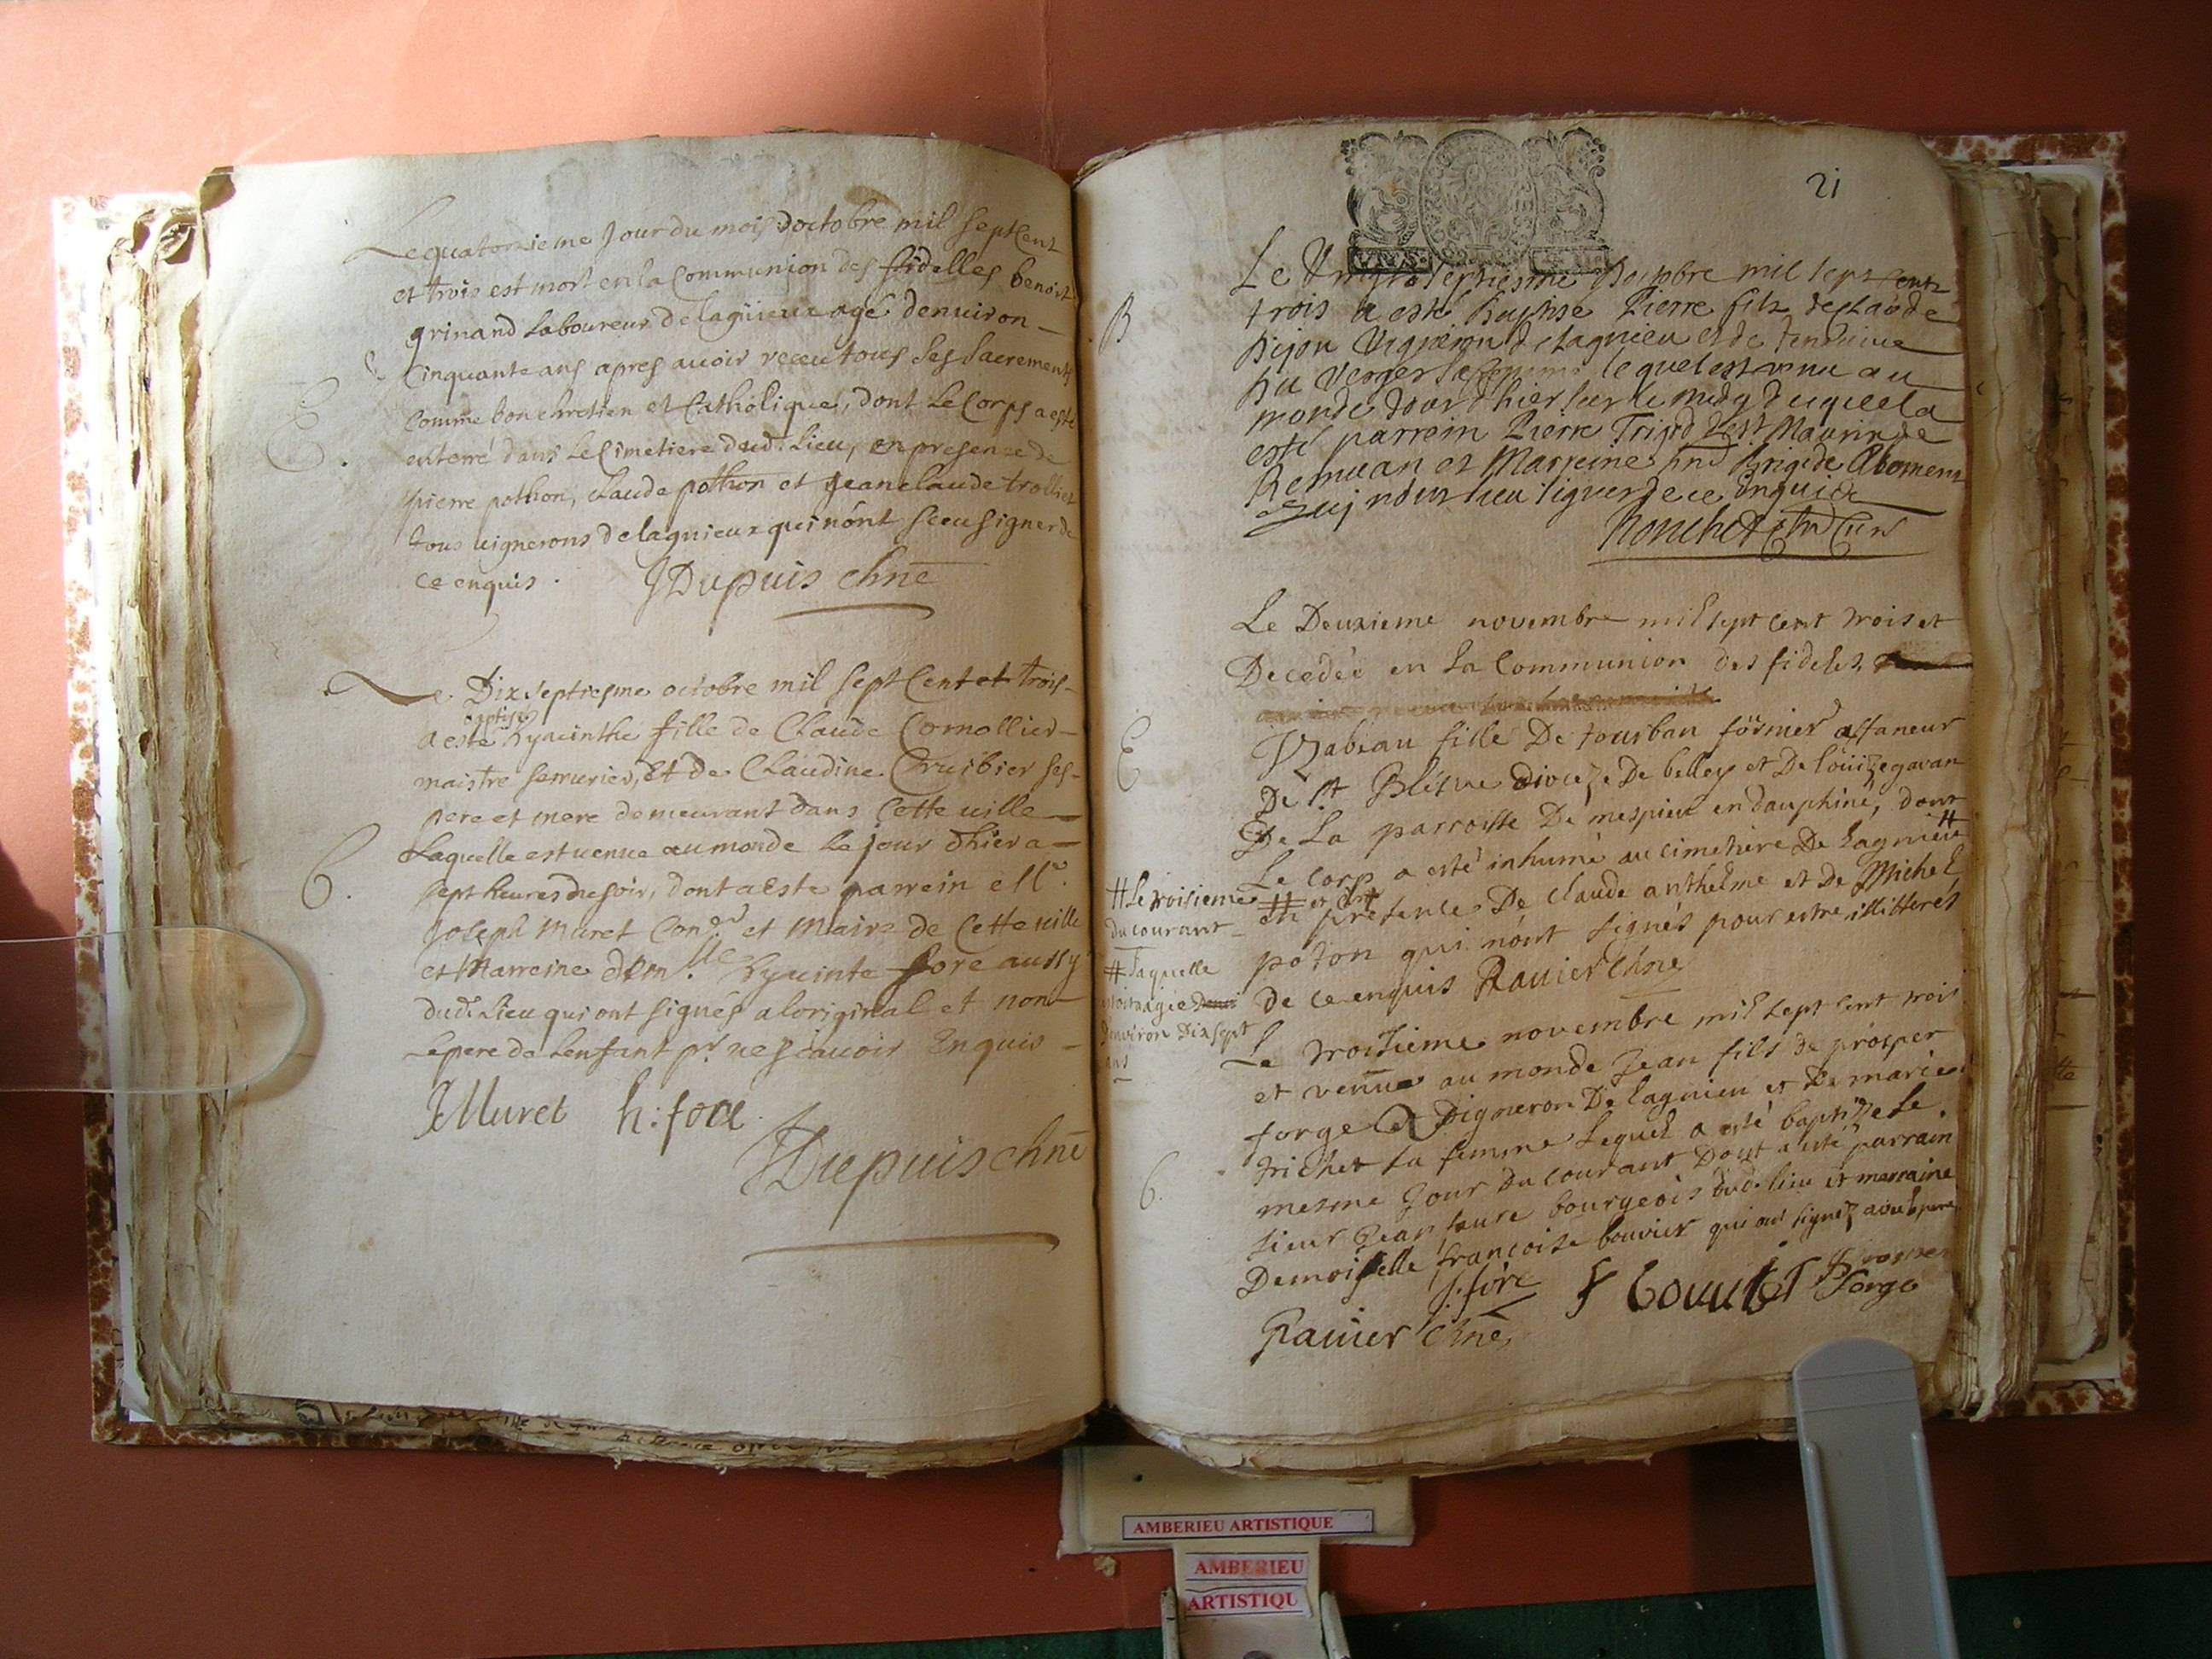 Le quatorzieme Jour du mois doctobre mil sept Cent
et trois est mort en la Communion des fidelles benoit
grinand Laboureur de lagnieux agé denuiron
Cinquante ans apres auoir receu tous ses sacrements
Comme bon chretien et Catholique, dont Le Corps a esté
E.
enterré dans Le Cimetiere dud. Lieu, en presence de
pierre pothon, claude pothon et jean claude trollier
tous uignerons de lagnieux qui nónt sceu signer de
ce enquis. JDupuis chne
Le Dix septiesme octobre mil sept Cent et trois
baptisé
a esté hyacinthe fille de Claude Comollier
maistre serrurier, Et de Claudine Cruibier ses
pere et mere demeurant dans Cette uille
Laquelle est uenue au monde Le jour dhier a
B.
sept heures du soir, dont a este parrein
Joseph Muret et Maire de Cette uille
et Marreine hyacinte fore aussy
dud. Lieu qui ont signés a loriginal et non
Le pere de Lenfant pr ne scauoir Enquis
JMuret h: fore
JDupuis chne
21
B
Le Vingt septiesme mil sept cent
trois a esté Baptisé Pierre fils de Claude
Vigneron de Lagnieu et de
du Verger sa femme lequel est venu au
monde Jour d'hier sur le midy duquel a
esté parrein Pierre
et Marreine
qui nont sceu signer de ce enquis
Le Deuxieme novembre mil sept cent trois et
Decedée en La Communion des fideles,
E
Yzabeau fille De fournier affaneur
De st Dioceze De belley et De loüize gavan
De La parroisse De mespieu en dauphiné, dont
Le corp a esté inhumé au cimetiere De Lagnieu #
# Le troisieme
du courant
en presence De claude anthelme et De Michel
poton qui nónt signés pour estre illitterés
# Laquelle
De ce enquis Rauier chne
denviron Dix sept
ans
Le troisieme novembre mil sept cent trois
et venüe au monde Jean fils de prosper
forge Vigneron De Lagnieu et De marie
trichet sa femme Lequel a esté baptizé Le
6.
mesme Jour du courant Dont a esté parrain
sieur Jean faure bourgeois dud. lieu et marraine
Demoiselle françoise bouvier qui ont signéz avec le pere
J. fore f bouuier Prosper
forge
Rauier chne
AMBERIEU ARTISTIQUE
AMBERIEU
ARTISTIQU